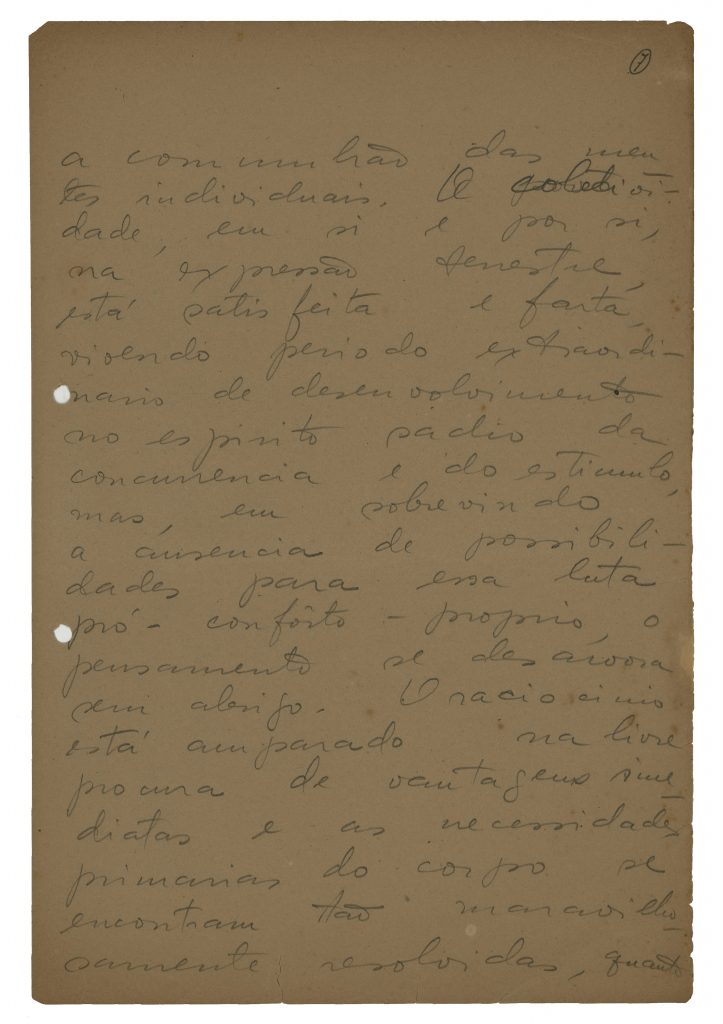 7
a communhão das men
tes individuais. A
dade, em si e por si,
na expressão terrestre,
está satisfeita e farta,
vivendo periodo extraordi-
nario de desenvolvimento
no espirito sadio da
concurrencia e do estimulo,
mas, em sobrevindo
a ausencia de possibili-
dades para essa luta
pró-confôrto-proprio, o
pensamento se desarvora
sem abrigo. O raciocinio
está amparado na livre
procura de vantagens ime
diatas e as necessidades
primarias do corpo se
encontram tão maravilho-
samente resolvidas, quanto